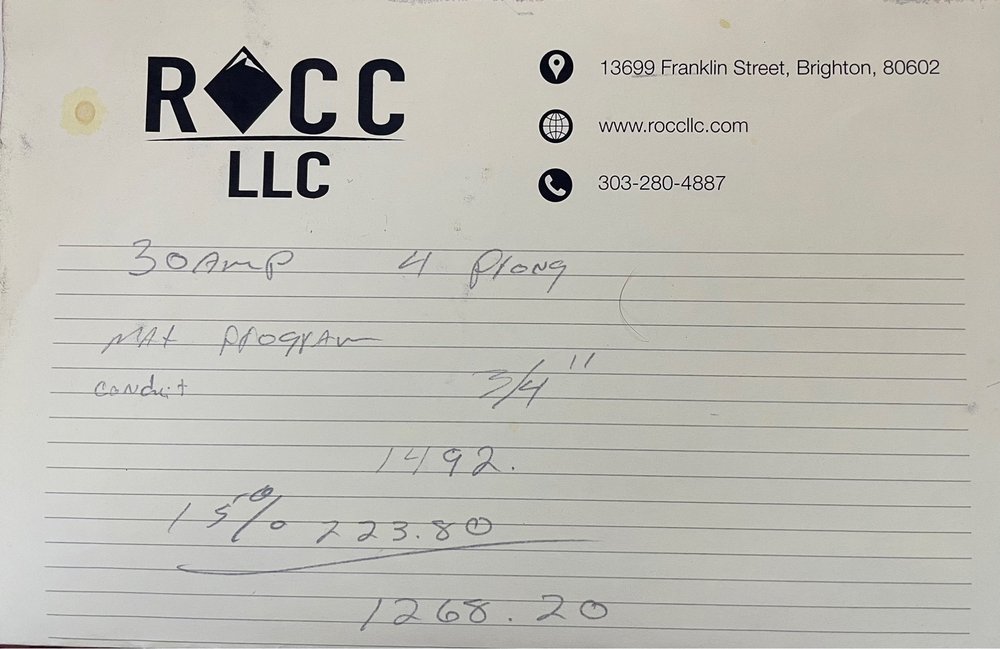 ROCC
LLC
13699 Franklin Street, Brighton, 80602
www.roccllc.com
303-280-4887
30 Amp 4 Prong
MAX Program
conduit 3/4"
1492.
15% 223.80
1268.20